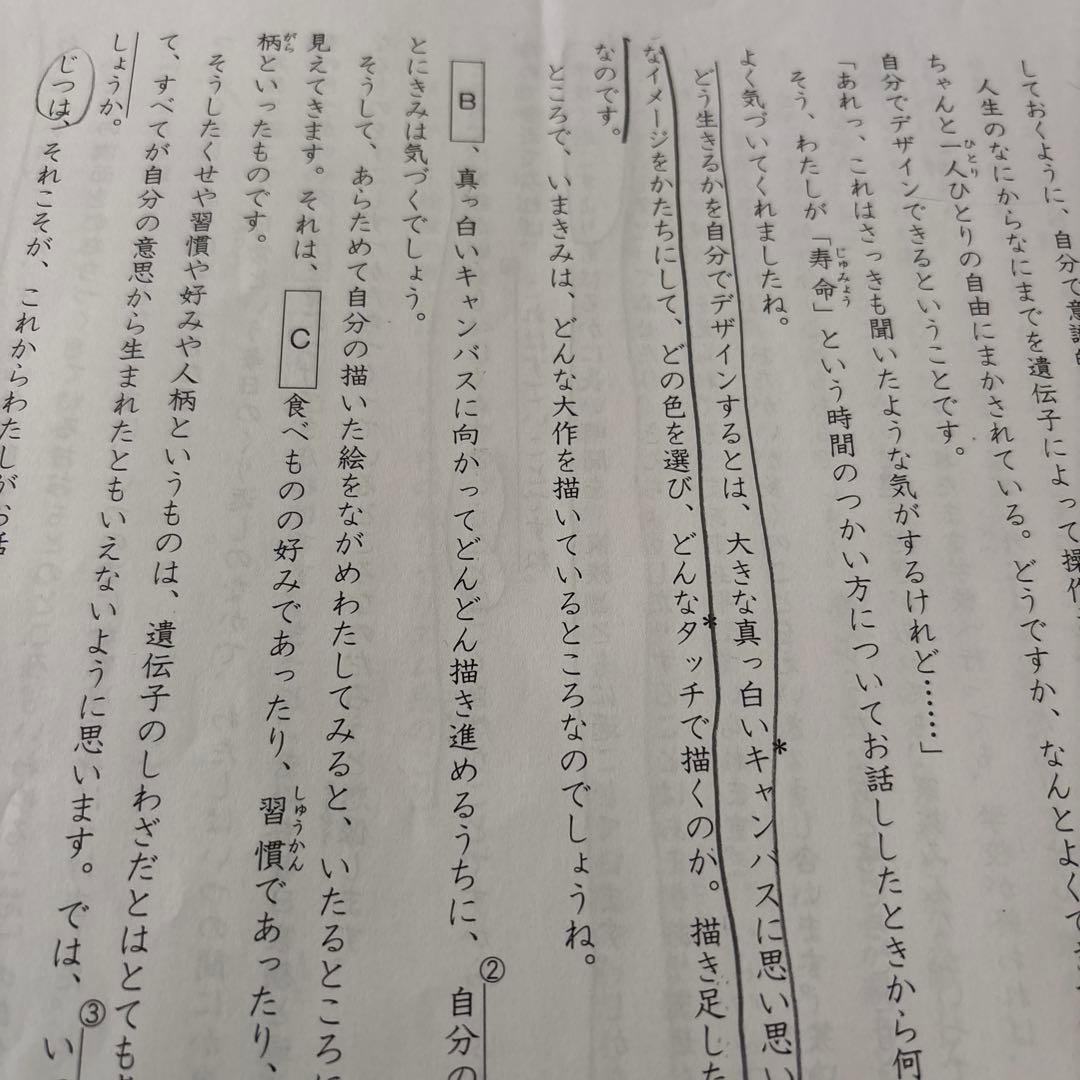 しておくように、自分で意識
人生のなにからなにまでを遺伝子によって操作
ちゃんと一人ひとりの自由にまかされている。どうですか、なんとよくでき
自分でデザインできるということです。
「あれっ、これはさっきも聞いたような気がするけれど……」
そう、わたしが「寿命」という時間のつかい方についてお話ししたときから何
よく気づいてくれましたね。
どう生きるかを自分でデザインするとは、大きな真っ白いキャンバスに思い思い
なイメージをかたちにして、どの色を選び、どんなタッチで描くのか。描き足した
なのです。
ところで、いまきみは、どんな大作を描いているところなのでしょうね。
B、真っ白いキャンバスに向かってどんどん描き進めるうちに、②自分の
とにきみは気づくでしょう。
そうして、あらためて自分の描いた絵をながめわたしてみると、いたるところに
見えてきます。それは、C食べものの好みであったり、習慣であったり、
柄といったものです。
そうしたくせや習慣や好みや人柄というものは、遺伝子のしわざだとはとても
て、すべてが自分の意思から生まれたともいえないように思います。では、③い
しょうか。
じつは、それこそが、これからわたしがお話